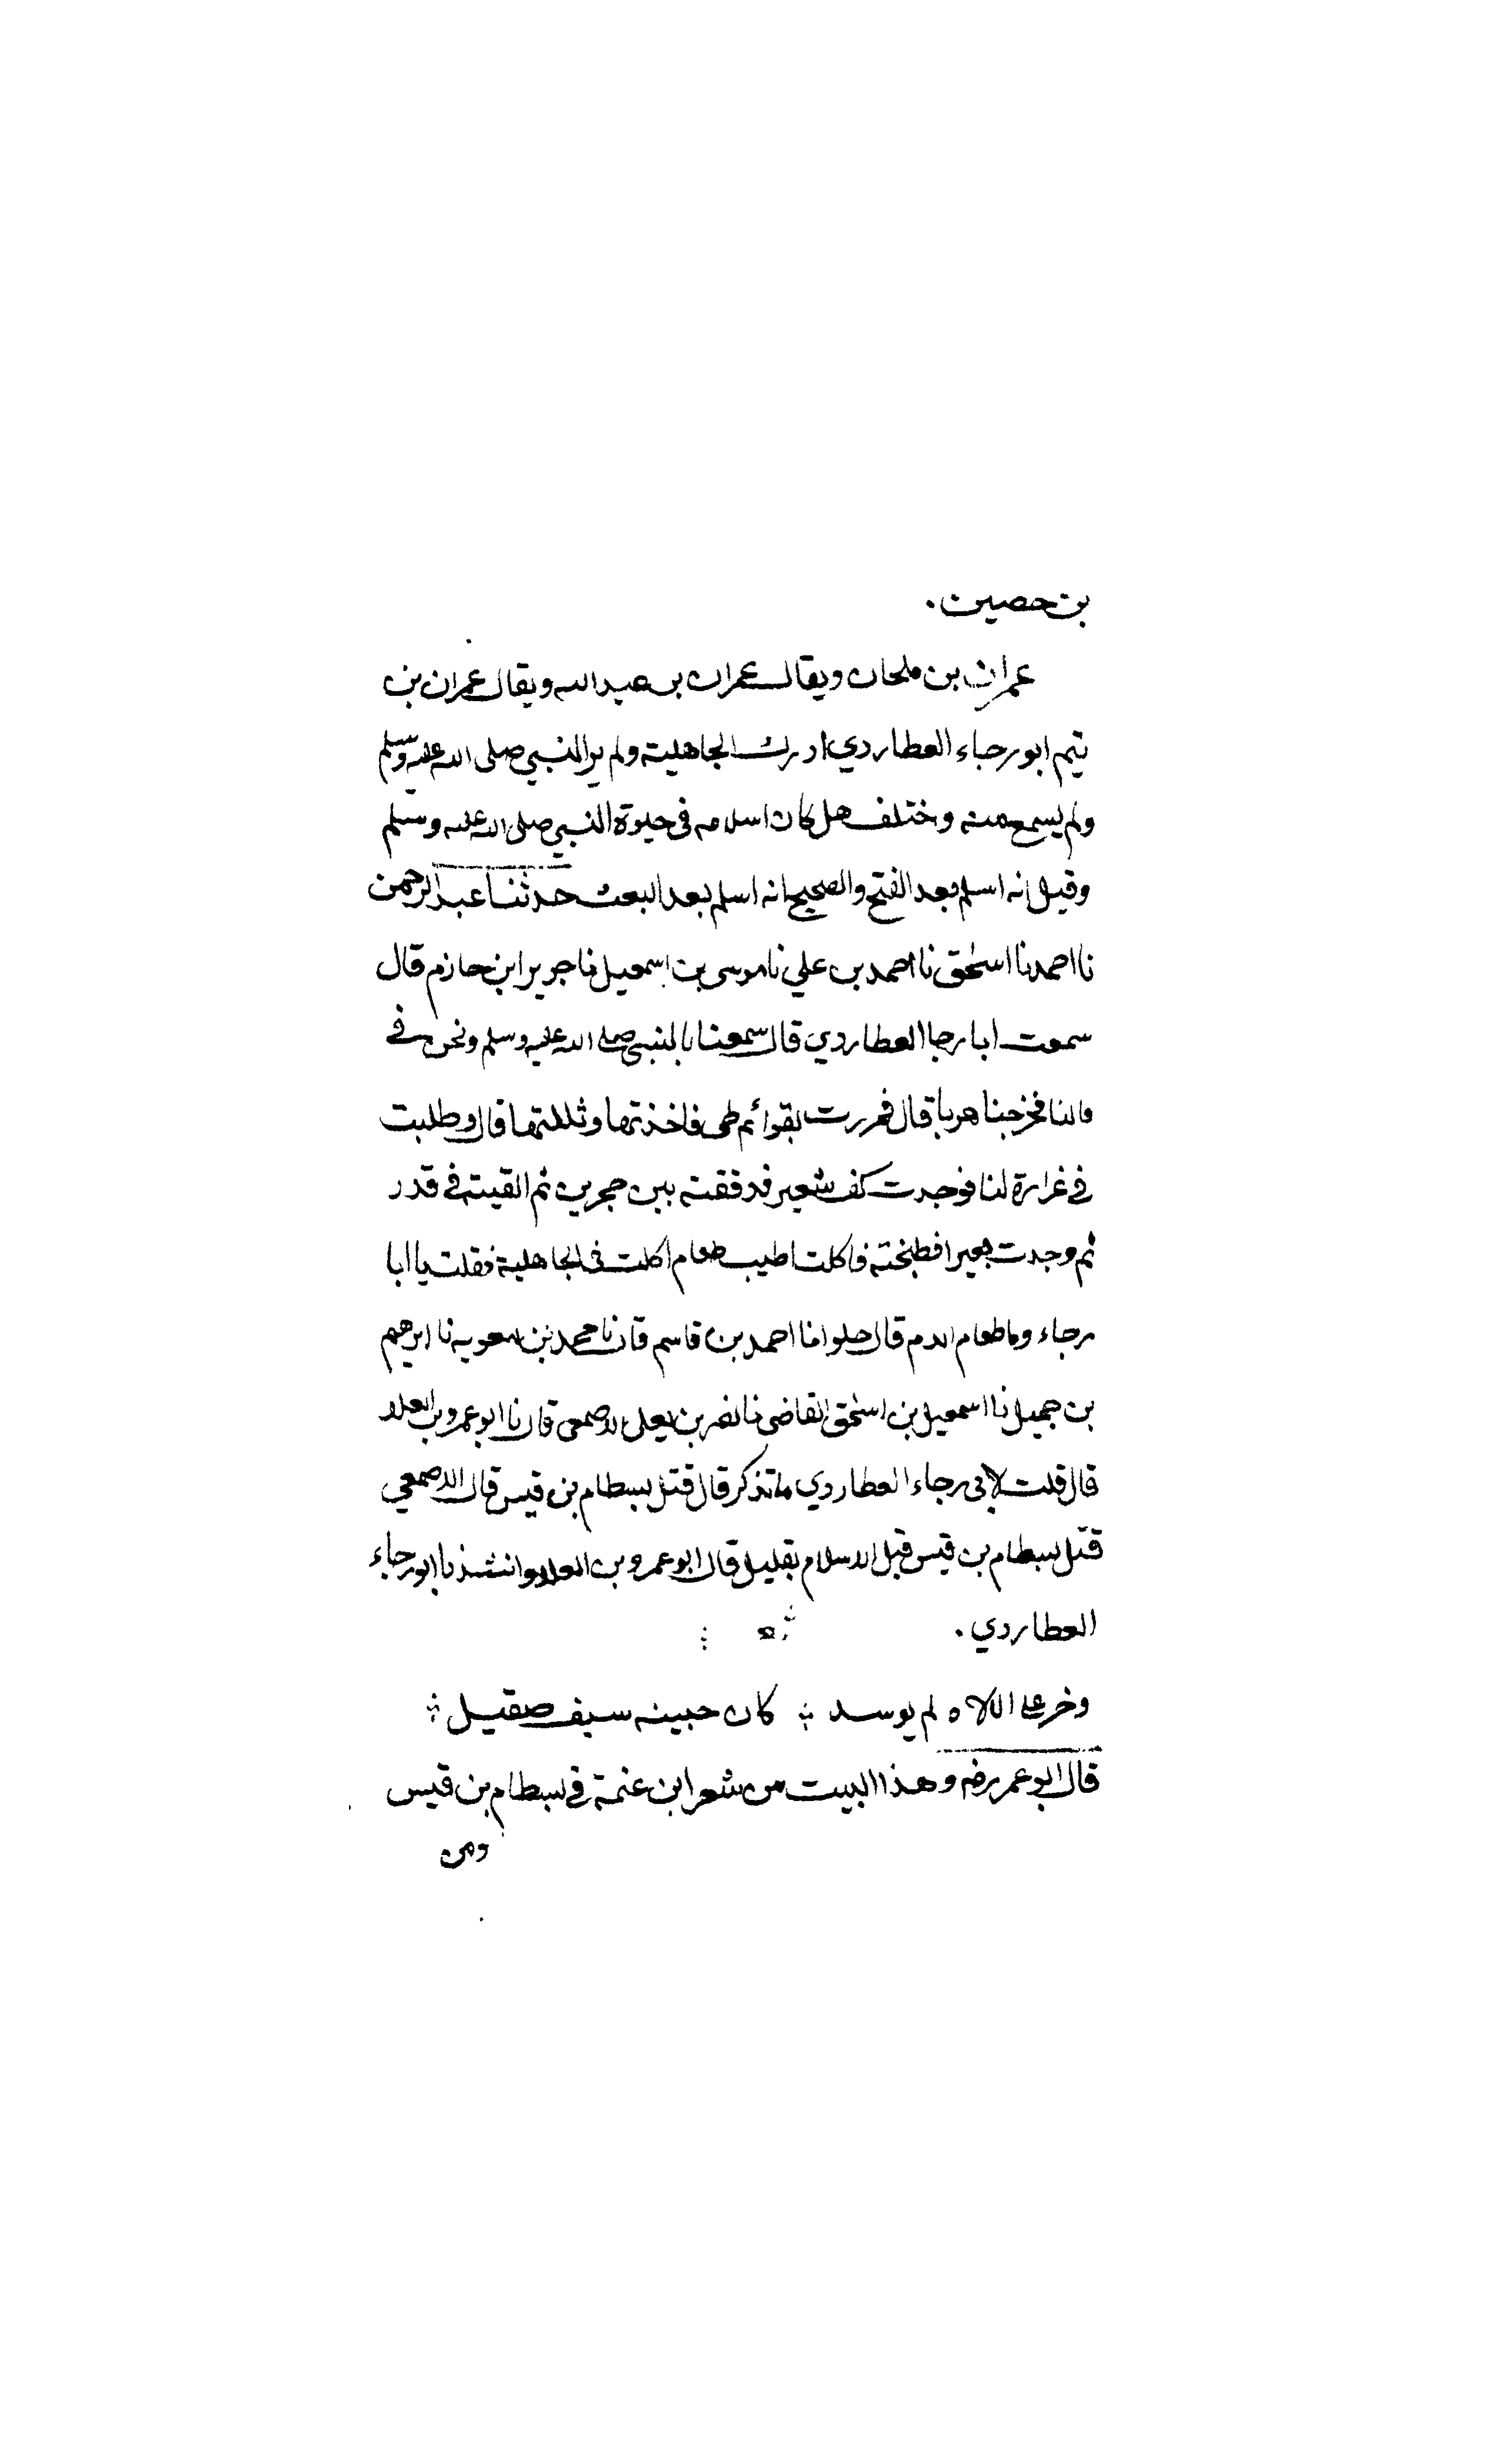 بن حصين.
عمران بن ملحان ويقال عمران بن عبد الله ويقال عمران بن
تيم ابو رجاء العطاردي ادرك الجاهلية ولم ير النبي صلى الله عليه وسلم
ولم يسمع منه واختلف هل كان اسلامه في حيوة النبي صلى الله عليه وسلم
وقيل انه اسلم بعد الفتح والصحيح انه اسلم بعد البعث حدثنا عبد الرحمن
نا احمد نا اسحق نا احمد بن علي نا موسى بن اسمعيل نا جرير ابن حازم قال
سمعت ابا رجا العطاردي قال سمعنا بالنبي صلى الله عليه وسلم ونحن في
مالنا فخرجنا هربا قال فمررت بقوائم ظبي فاخذتها وثللتها قال وطلبت
في غرارة لنا فوجدت كف شعير فدققته بين حجرين ثم القيته في قدر
ثم وجدت بعيرا فطبخته فاكلت اطيب طعام اكلت في الجاهلية فقلت يا ابا
رجاء وما طعام الدم قال حلو انا احمد بن قاسم قال نا محمد بن معوية نا ابرهيم
بن جميل نا اسمعيل بن اسحق القاضي نا نصر بن يعلى الاصمعي قال نا ابو عمرو بن العلا
قال قلت لابي رجاء العطاردي ما تذكر قال قتل بسطام بن قيس قال الاصمعي
قتل بسطام بن قيس قبل الاسلام بقليل قال ابو عمرو بن العلا وانشدنا ابو رجاء
العطاردي.
وخر على الالاه لم يوسد كان جبينه سيف صقيل
قال ابو عمر رضه وهذا البيت من شعر ابن عنمة في بسطام بن قيس
ومن